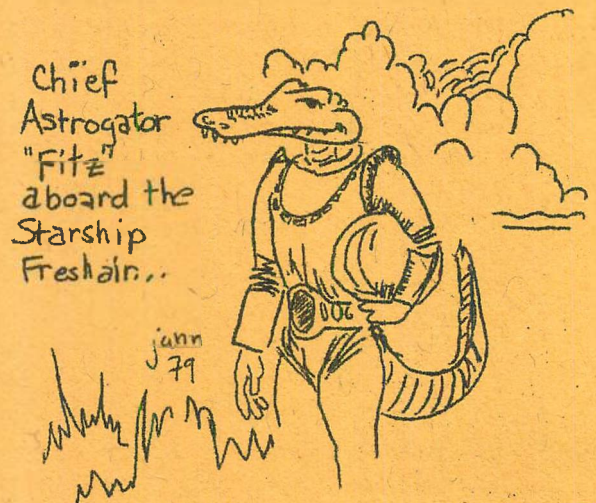 Chief
Astrogator
"Fitz"
aboard the
Starship
Freshair...
jann
79